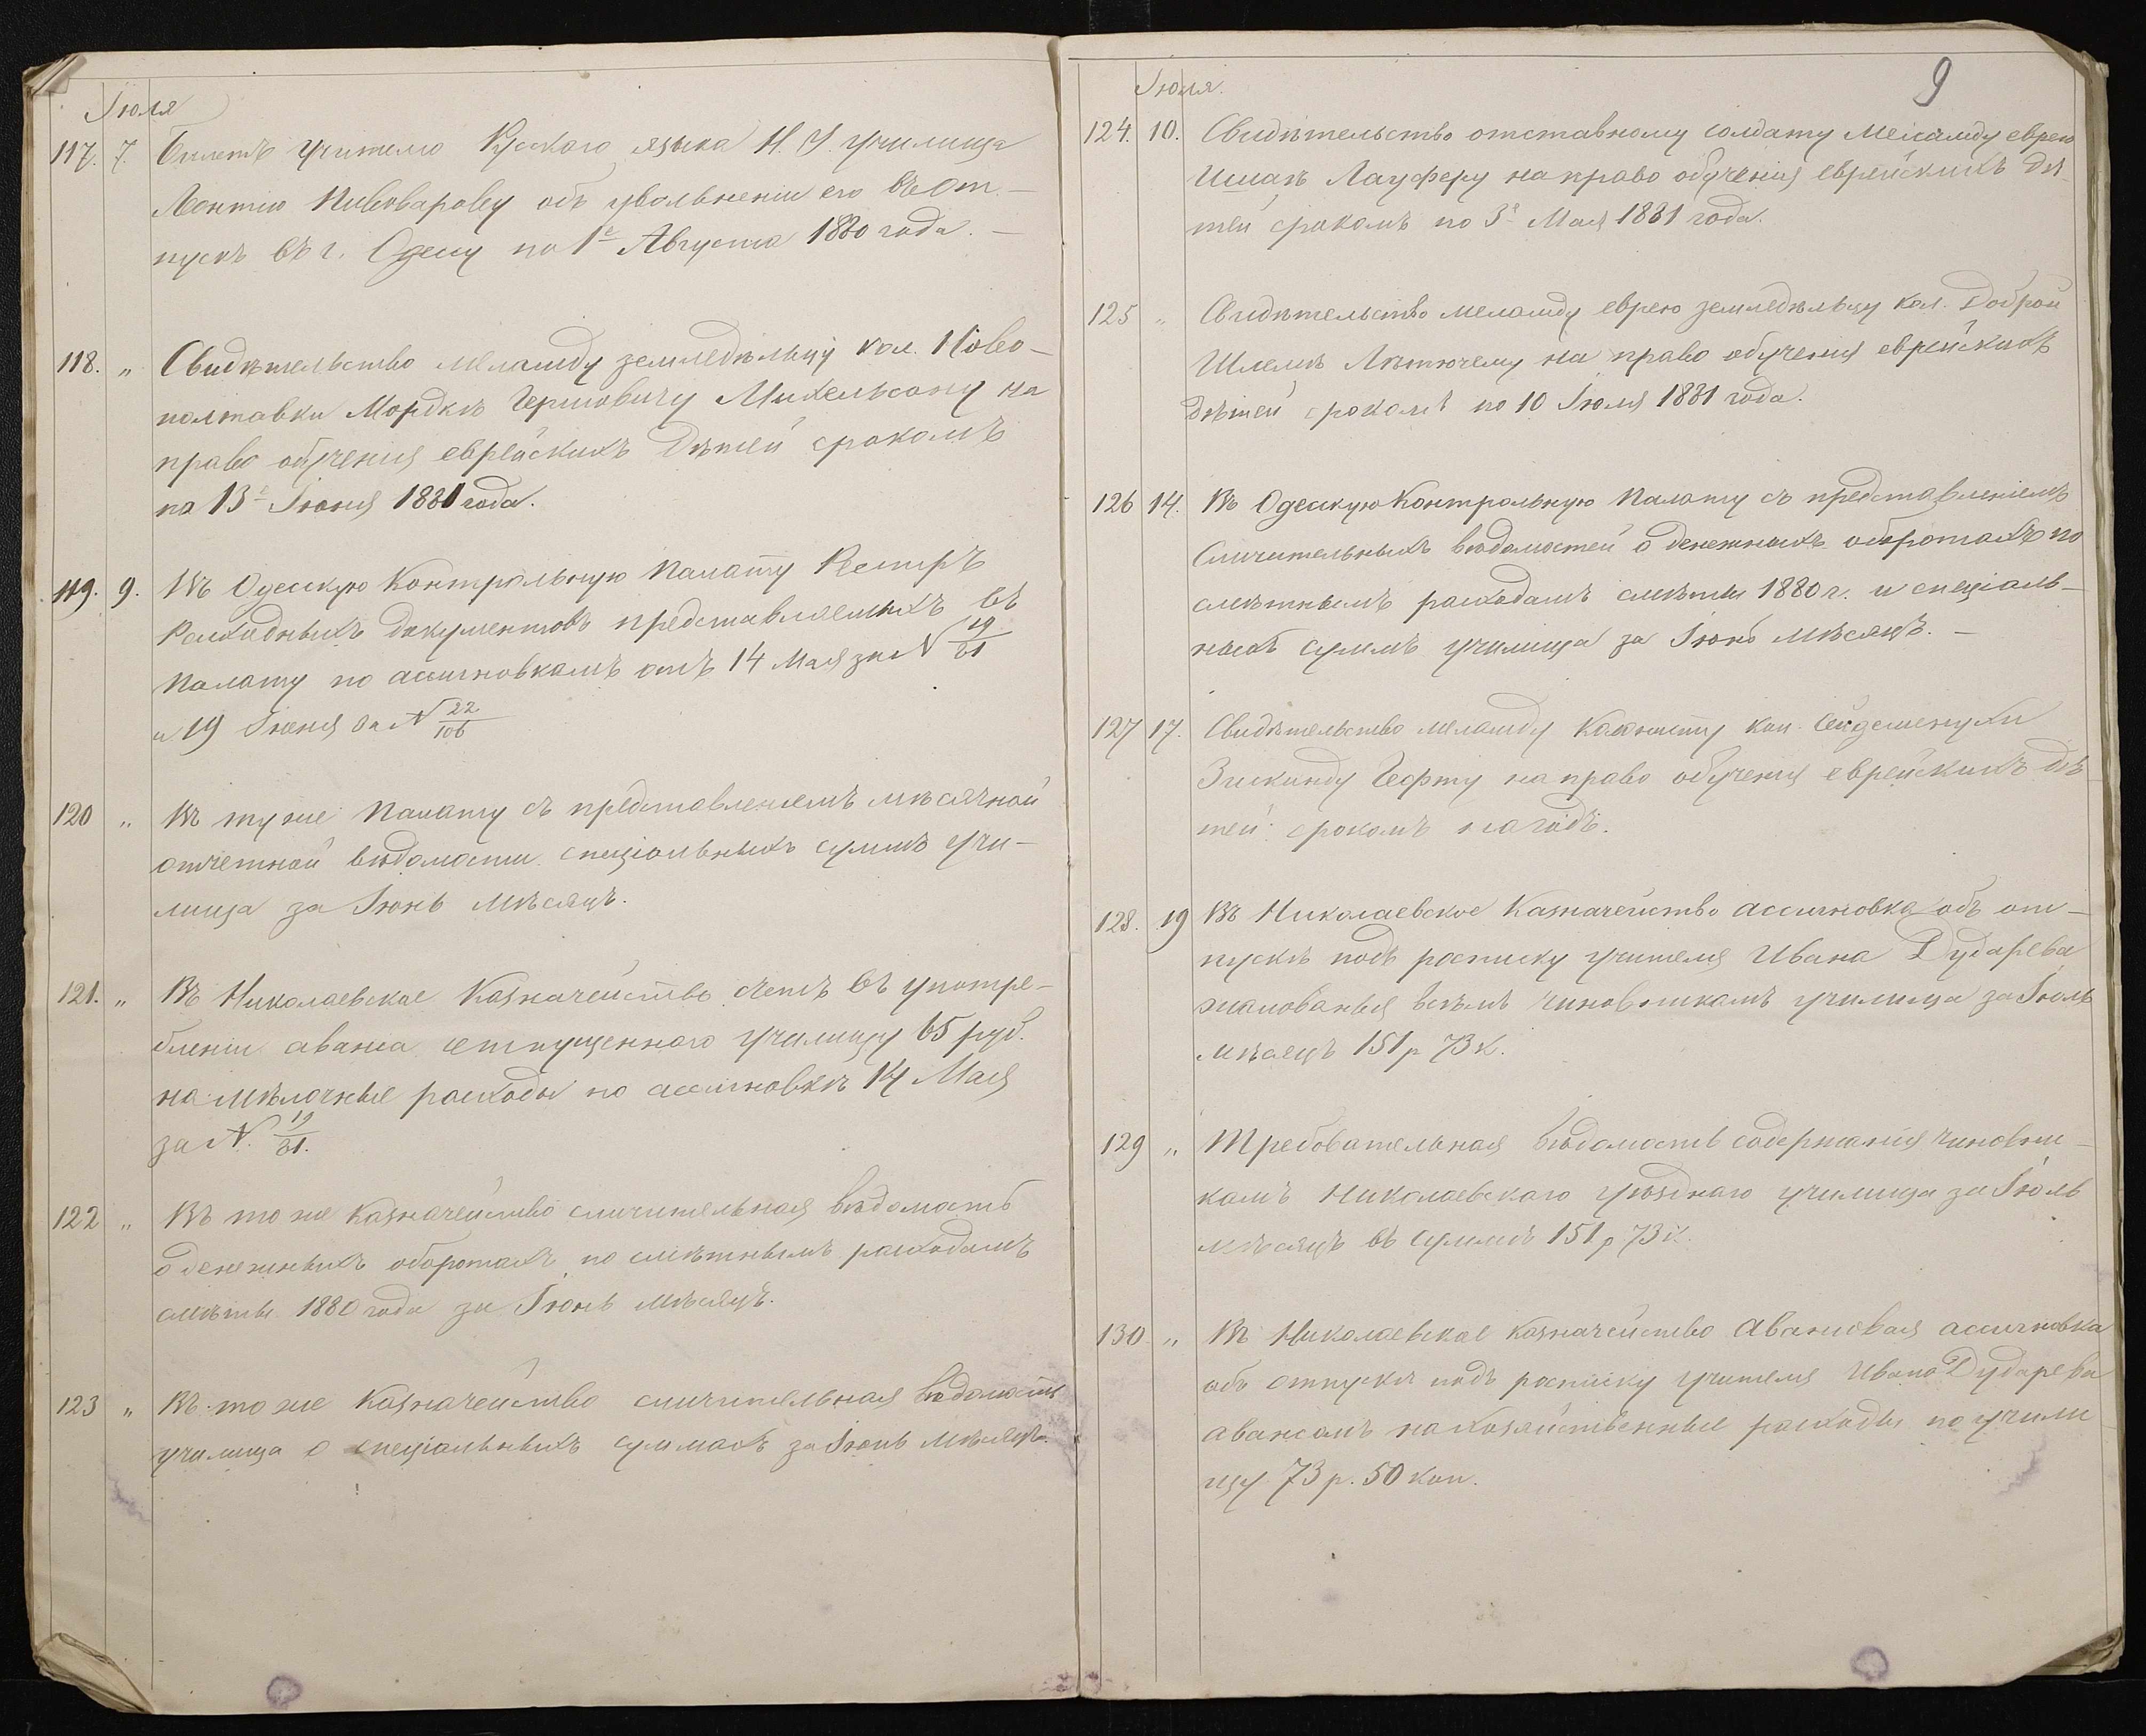 Іюля
117. 7. Билетъ учителю Русскаго языка Н. У. училища
Леонтію Пивоварову объ увольненіи его въ от-
пускъ въ г. Одессу по 1е Августа 1880 года. —
118. „ Свидѣтельство меламду земледѣльцу кол. Ново-
полтавки Мордкѣ Гершовичу Михельсону на
право обученія еврейскихъ дѣтей срокомъ
по 13е Іюня 1881 года.
119. 9. Въ Одесскую Контрольную Палату Реестръ
Расходныхъ документовъ представляемыхъ въ
Палату по ассигновкамъ отъ 14 Мая за N 19/81
и 19 Іюня за N 22/106
120 „ Въ туже Палату съ представленіемъ мѣсячной
отчетной вѣдомости спеціальныхъ суммъ учи-
лища за Іюнь мѣсяцъ.
121. „ Въ Николаевское Казначейство счетъ въ употре-
бленіи аванса отпущеннаго училищу 65 руб.
на мѣлочные расходы по ассигновкѣ 14 Мая
за N. 19/81.
122 „ Въ тоже Казначейство сличительная вѣдомость
о денежныхъ оборотахъ по смѣтнымъ расходамъ
смѣты 1880 года за Іюнь мѣсяцъ.
123 „ Въ тоже Казначейство сличительная вѣдомость
училища о спеціальныхъ суммахъ за Іюнь мѣсяцъ.
9
Іюля.
124. 10. Свидѣтельство отставному солдату меламду еврею
Ицкаъ Лауферу на право обученія еврейскихъ дѣ-
тей срокомъ по 3е Мая 1881 года.
125 „ Свидѣтельство меламду еврею земледѣльцу кол. Доброй
Шлемѣ Лѣтючему на право обученія еврейскихъ
дѣтей срокомъ по 10 Іюля 1881 года.
126 14. Въ Одесскую Контрольную Палату съ представленіемъ
Сличительныхъ вѣдомостей о денежныхъ оборотахъ по
смѣтнымъ расходамъ смѣты 1880 г. и спеціаль-
ныхъ суммъ училища за Іюнь мѣсяцъ. —
127 17. Свидѣтельство меламду Колонисту кол. Сейдеменухи
Зискинду Гефту на право обученія еврейскихъ дѣ-
тей срокомъ на годъ.
128. 19 Въ Николаевское Казначейство ассигновка объ от-
пускѣ подъ росписку учителя Ивана Дударева
жалованья всѣмъ чиновникамъ училища за Іюль
мѣсяцъ 151 р 73 к.
129 „ Требовательная вѣдомость содержанія чиновни-
камъ Николаевскаго уѣзднаго училища за Іюль
мѣсяцъ въ суммѣ 151 р 73 к.
130 „ Въ Николаевское Казначейство Авансовая ассигновка
объ отпускѣ подъ росписку учителя Ивана Дударева
авансомъ на хозяйственные расходы по учили-
щу 73 р. 50 коп.